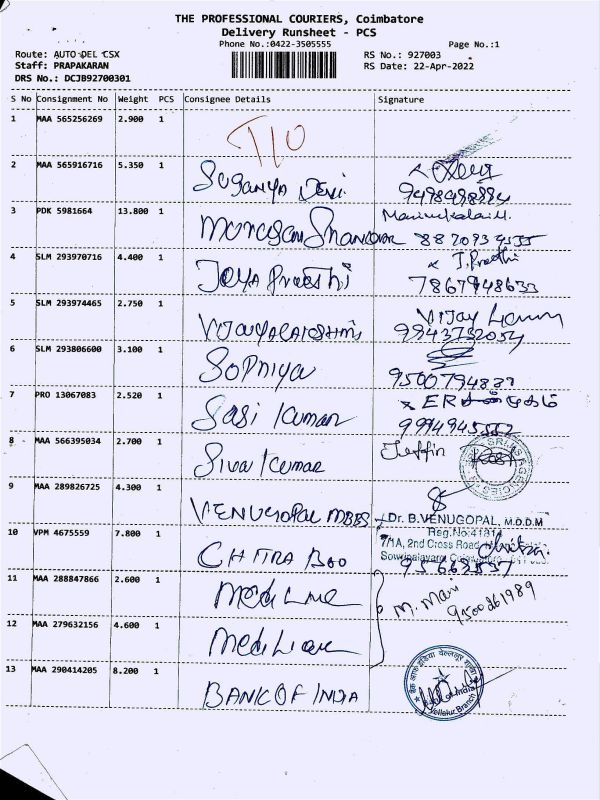 THE PROFESSIONAL COURIERS, Coimbatore
Delivery Runsheet - PCS
Phone No.:0422-3505555
Page No.:1
Route: AUTO DEL CSX
RS No.: 927003
Staff: PRAPAKARAN
RS Date: 22-Apr-2022
DRS No.: DCJB92700301
S No Consignment No Weight PCS Consignee Details Signature
1 MAA 565256269 2.900 1 T/O
2 MAA 565916716 5.350 1 Suganya Devi
3 PDK 5981664 13.800 1 Murugan Shankar
4 SLM 293970716 4.400 1 Jeya Preethi J. Preethi
5 SLM 293974465 2.750 1 Vijayalakshmi Vijay
9943752054
6 SLM 293806600 3.100 1 Sopniya
7 PRO 13067083 2.520 1 Sasi Kumar
8 MAA 566395034 2.700 1 Siva Kumar
SRIJAS AGENCIES
9 MAA 289826725 4.300 1 VENUGOPAL MBBS Dr. B.VENUGOPAL, M.D.D.M
Reg.No:41814
7/1A, 2nd Cross Road
10 VPM 4675559 7.800 1 CHITRA BOO
11 MAA 288847866 2.600 1 M. Mani
9500261989
12 MAA 279632156 4.600 1
13 MAA 290414205 8.200 1 BANK OF INDIA
Bank of India
Vellalur Branch